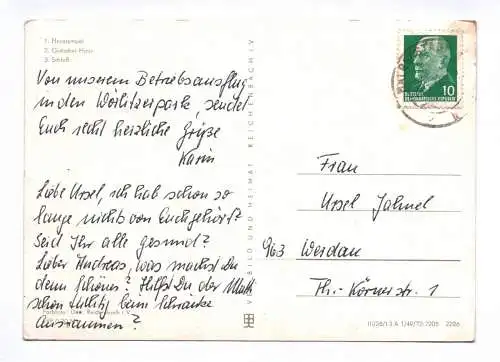 1. Herrenhaus
2. Gotisches Haus
3. Schloß
Von unserem Betriebsausflug
in den Wörlitzerpark, sendet
Euch recht herzliche Grüße
Karin
Liebe Ursel, ich hab schon so
lange nichts von Euch gehört?
Seid Ihr alle gesund?
Lieber Andreas, was machst Du
denn Schönes? Hilfst Du der Mutti
schon beim Schränke
ausräumen?
VEB BILD UND HEIMAT REICHENBACH I. V.
10
DEUTSCHE
DEMOKRATISCHE REPUBLIK
Frau
Ursel Jahnel
963 Werdau
Th.-Körnerstr. 1
III/26/13 A 1/49/72/2205 2206